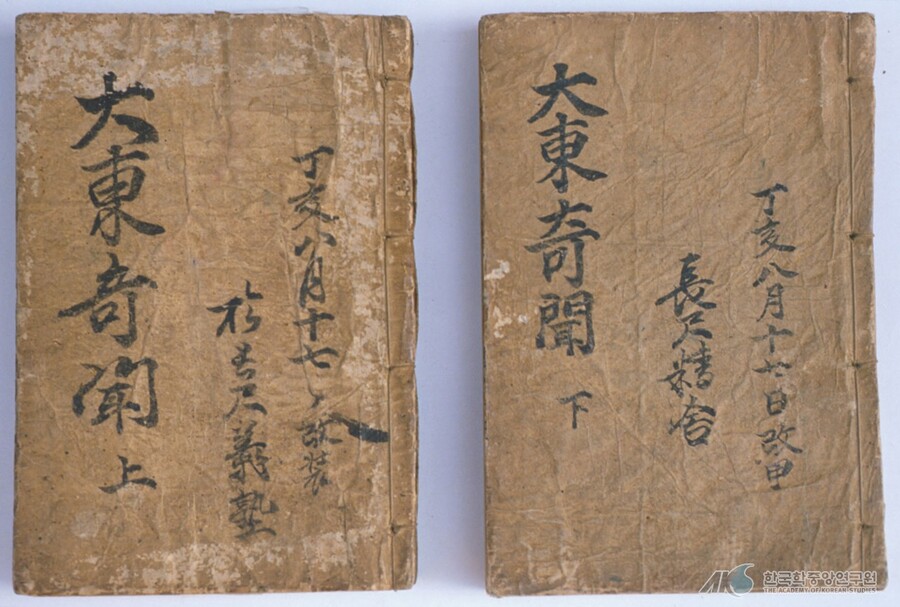 大東奇聞 上
丁亥八月十七日改裝
於長尺義塾
大東奇聞 下
丁亥八月十七日改甲
長尺精舍
한국학중앙연구원
THE ACADEMY OF KOREAN STUDIES